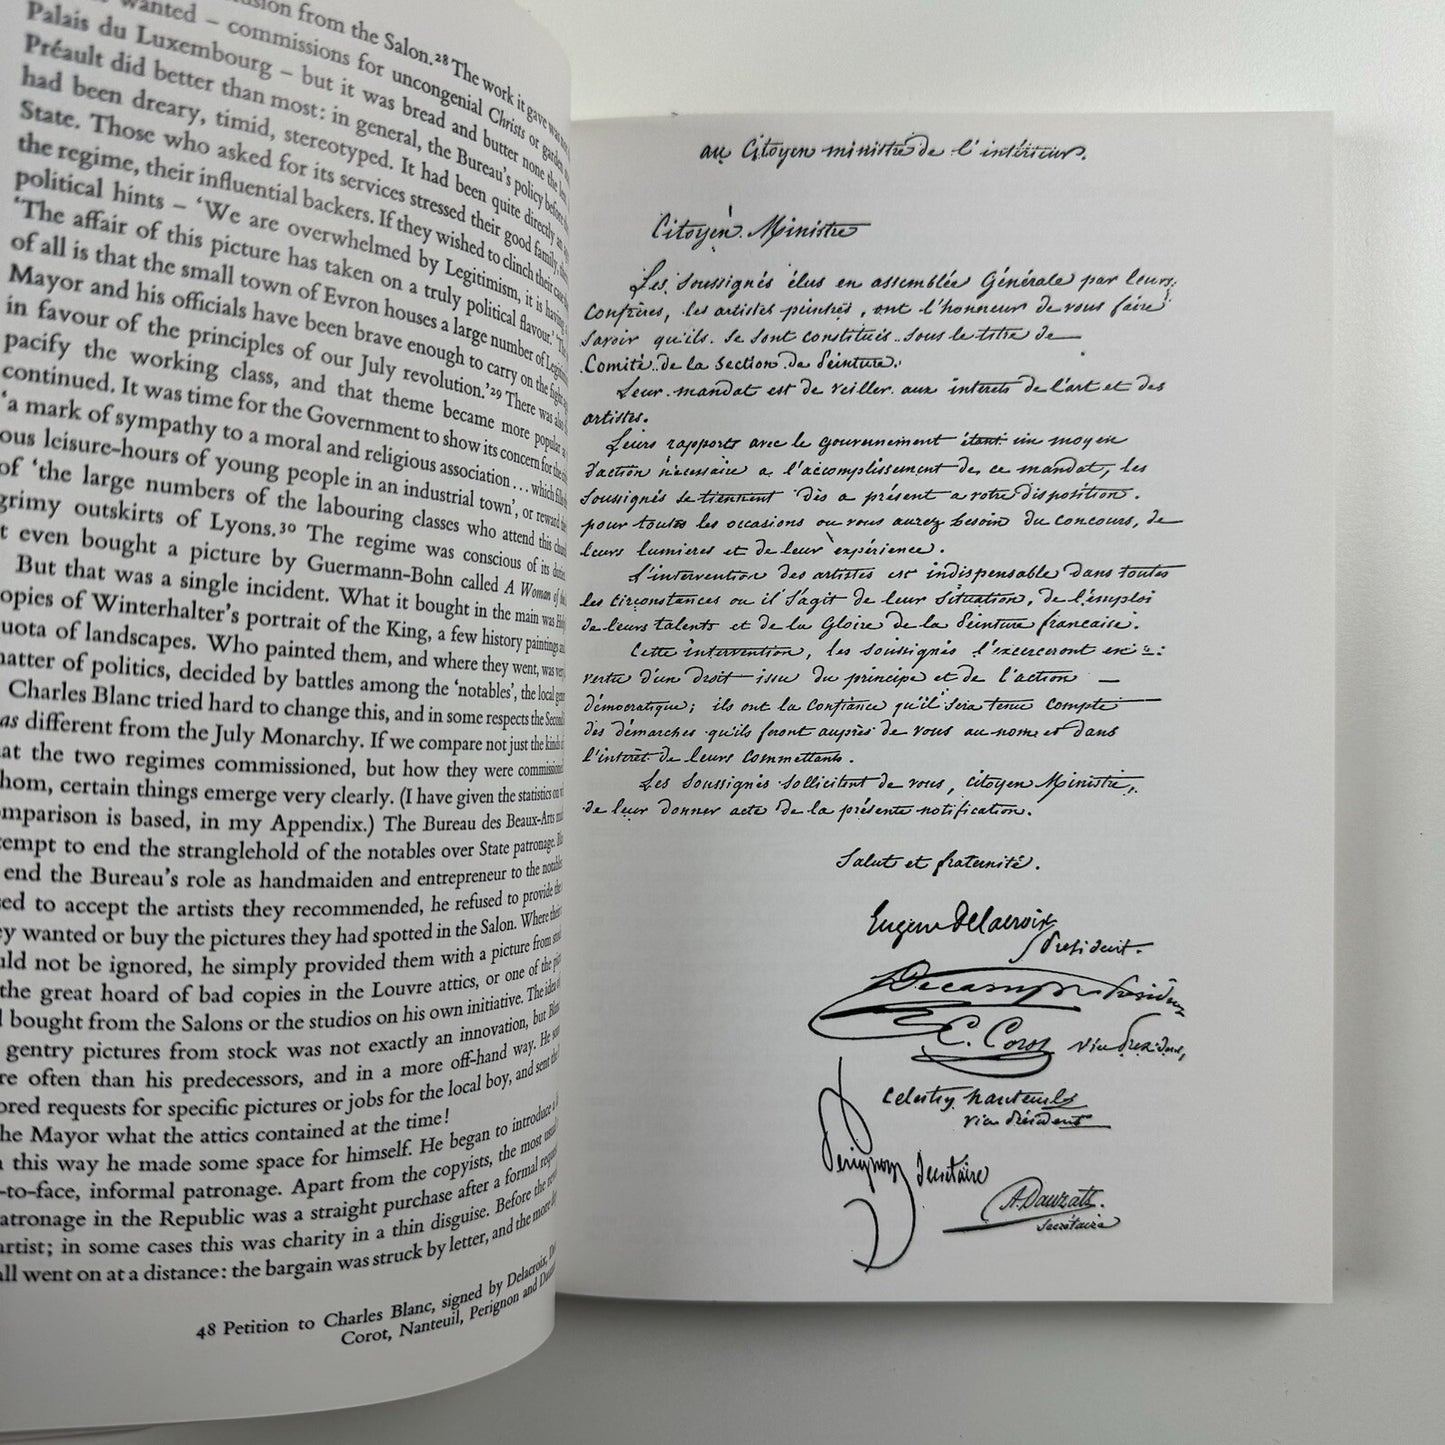 usion from the Salon.²⁸ The work it gave was
wanted – commissions for uncongenial Christs or garden
Palais du Luxembourg – but it was bread and butter none the
Préault did better than most: in general, the Bureau's policy before
had been dreary, timid, stereotyped. It had been quite directly an
State. Those who asked for its services stressed their good family,
the regime, their influential backers. If they wished to clinch their case
political hints – 'We are overwhelmed by Legitimism, it is having
'The affair of this picture has taken on a truly political flavour.'
of all is that the small town of Evron houses a large number of
Mayor and his officials have been brave enough to carry on the fight
in favour of the principles of our July revolution.'²⁹ There was also
pacify the working class, and that theme became more popular
continued. It was time for the Government to show its concern for the
'a mark of sympathy to a moral and religious association... which
ous leisure-hours of young people in an industrial town', or reward
of 'the large numbers of the labouring classes who attend this
grimy outskirts of Lyons.³⁰ The regime was conscious of its
t even bought a picture by Guermann-Bohn called A Woman of the
But that was a single incident. What it bought in the main was
opies of Winterhalter's portrait of the King, a few history paintings
uota of landscapes. Who painted them, and where they went, was
natter of politics, decided by battles among the 'notables', the local
Charles Blanc tried hard to change this, and in some respects the Second
as different from the July Monarchy. If we compare not just the kinds
at the two regimes commissioned, but how they were commissioned
hom, certain things emerge very clearly. (I have given the statistics on
omparison is based, in my Appendix.) The Bureau des Beaux-Arts
tempt to end the stranglehold of the notables over State patronage.
end the Bureau's role as handmaiden and entrepreneur to the notables
sed to accept the artists they recommended, he refused to provide the
ey wanted or buy the pictures they had spotted in the Salon. Where
uld not be ignored, he simply provided them with a picture from
the great hoard of bad copies in the Louvre attics, or one of the
d bought from the Salons or the studios on his own initiative. The idea of
gentry pictures from stock was not exactly an innovation, but Blanc
re often than his predecessors, and in a more off-hand way. He
ored requests for specific pictures or jobs for the local boy, and sent the
he Mayor what the attics contained at the time!
n this way he made some space for himself. He began to introduce a
-to-face, informal patronage. Apart from the copyists, the most usual
atronage in the Republic was a straight purchase after a formal request
artist; in some cases this was charity in a thin disguise. Before the
all went on at a distance: the bargain was struck by letter, and the more
48 Petition to Charles Blanc, signed by Delacroix,
Corot, Nanteuil, Perignon and
au Citoyen ministre de l'intérieur.
Citoyen Ministre
Les soussignés élus en assemblée Générale par leurs
Confrères, les artistes peintres, ont l'honneur de vous faire
savoir qu'ils se sont constitués sous le titre de
Comité de la Section de Peinture.
Leur mandat est de veiller aux intérets de l'art et des
artistes.
Leurs rapports avec le gouvernement étant un moyen
d'action nécessaire a l'accomplissement de ce mandat, les
soussignés se tiennent dès a présent a votre disposition
pour toutes les occasions ou vous aurez besoin du concours, de
leurs lumieres et de leur expérience.
L'intervention des artistes est indispensable dans toutes
les circonstances ou il s'agit de leur situation, de l'emploi
de leurs talents et de la Gloire de la Peinture francaise.
Cette intervention, les soussignés l'exerceront en
vertu d'un droit issu du principe et de l'action
démocratique; ils ont la Confiance qu'il sera tenu compte
des démarches qu'ils feront auprès de vous au nom et dans
l'intérêt de leurs commettants.
Les soussignés sollicitent de vous, citoyen Ministre,
de leur donner acte de la présente notification.
Salut et fraternité.
Eugene Delacroix
President.
Decamps
C. Corot vice President,
Celestin Nanteuil
vice Président
Perignon Secretaire
A. Dauzats.
Secrétaire